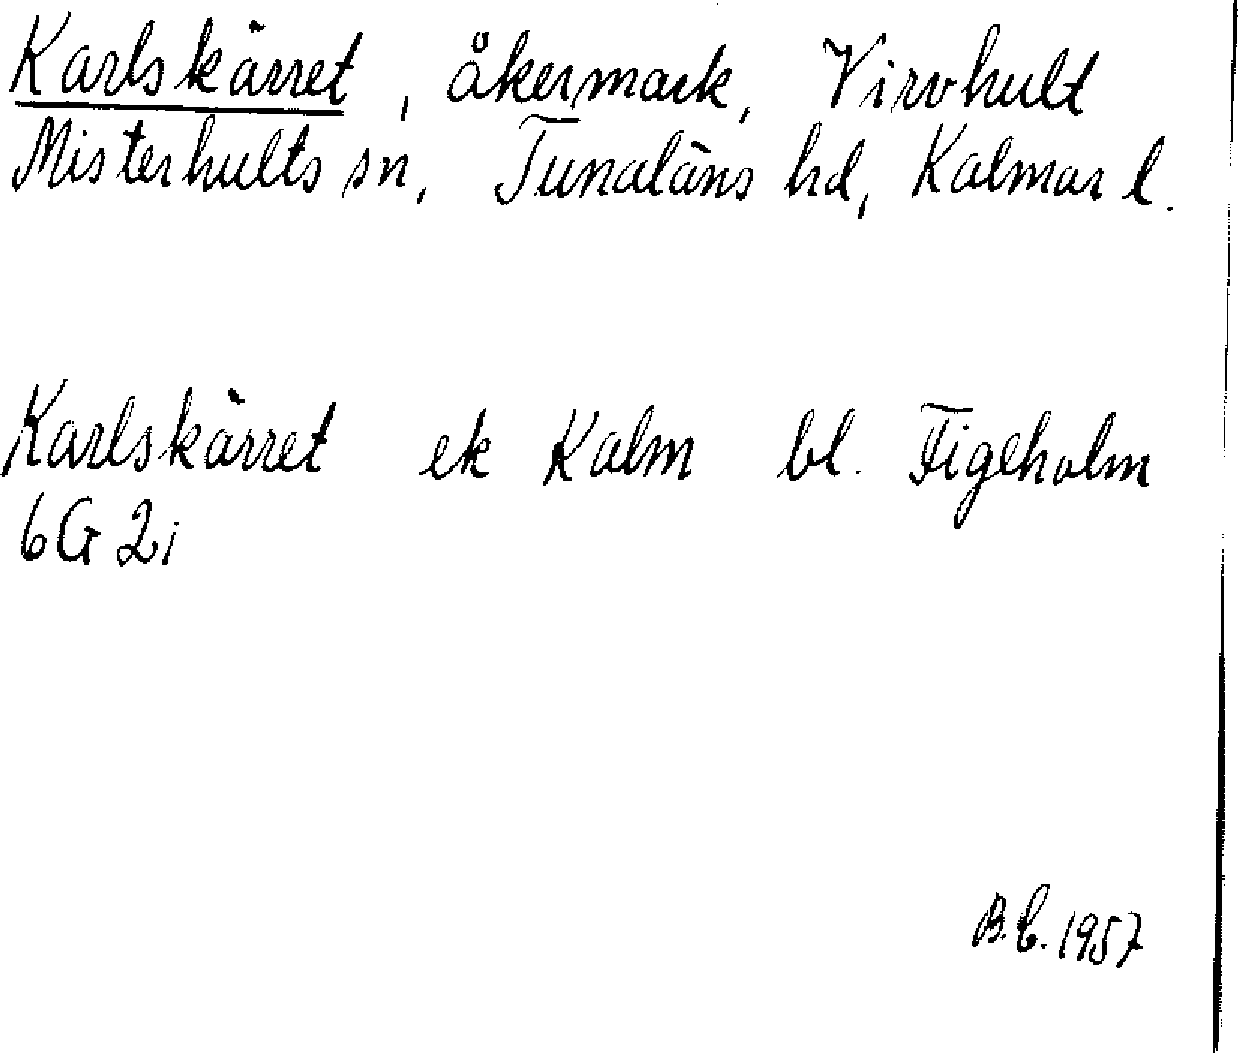 Karlskärret, åkermark, Virvhult
Misterhults sn, Tunaläns hd, Kalmar l.
Karlskärret ek Kalm bl. Figeholm
6G 2i
B.C. 1957